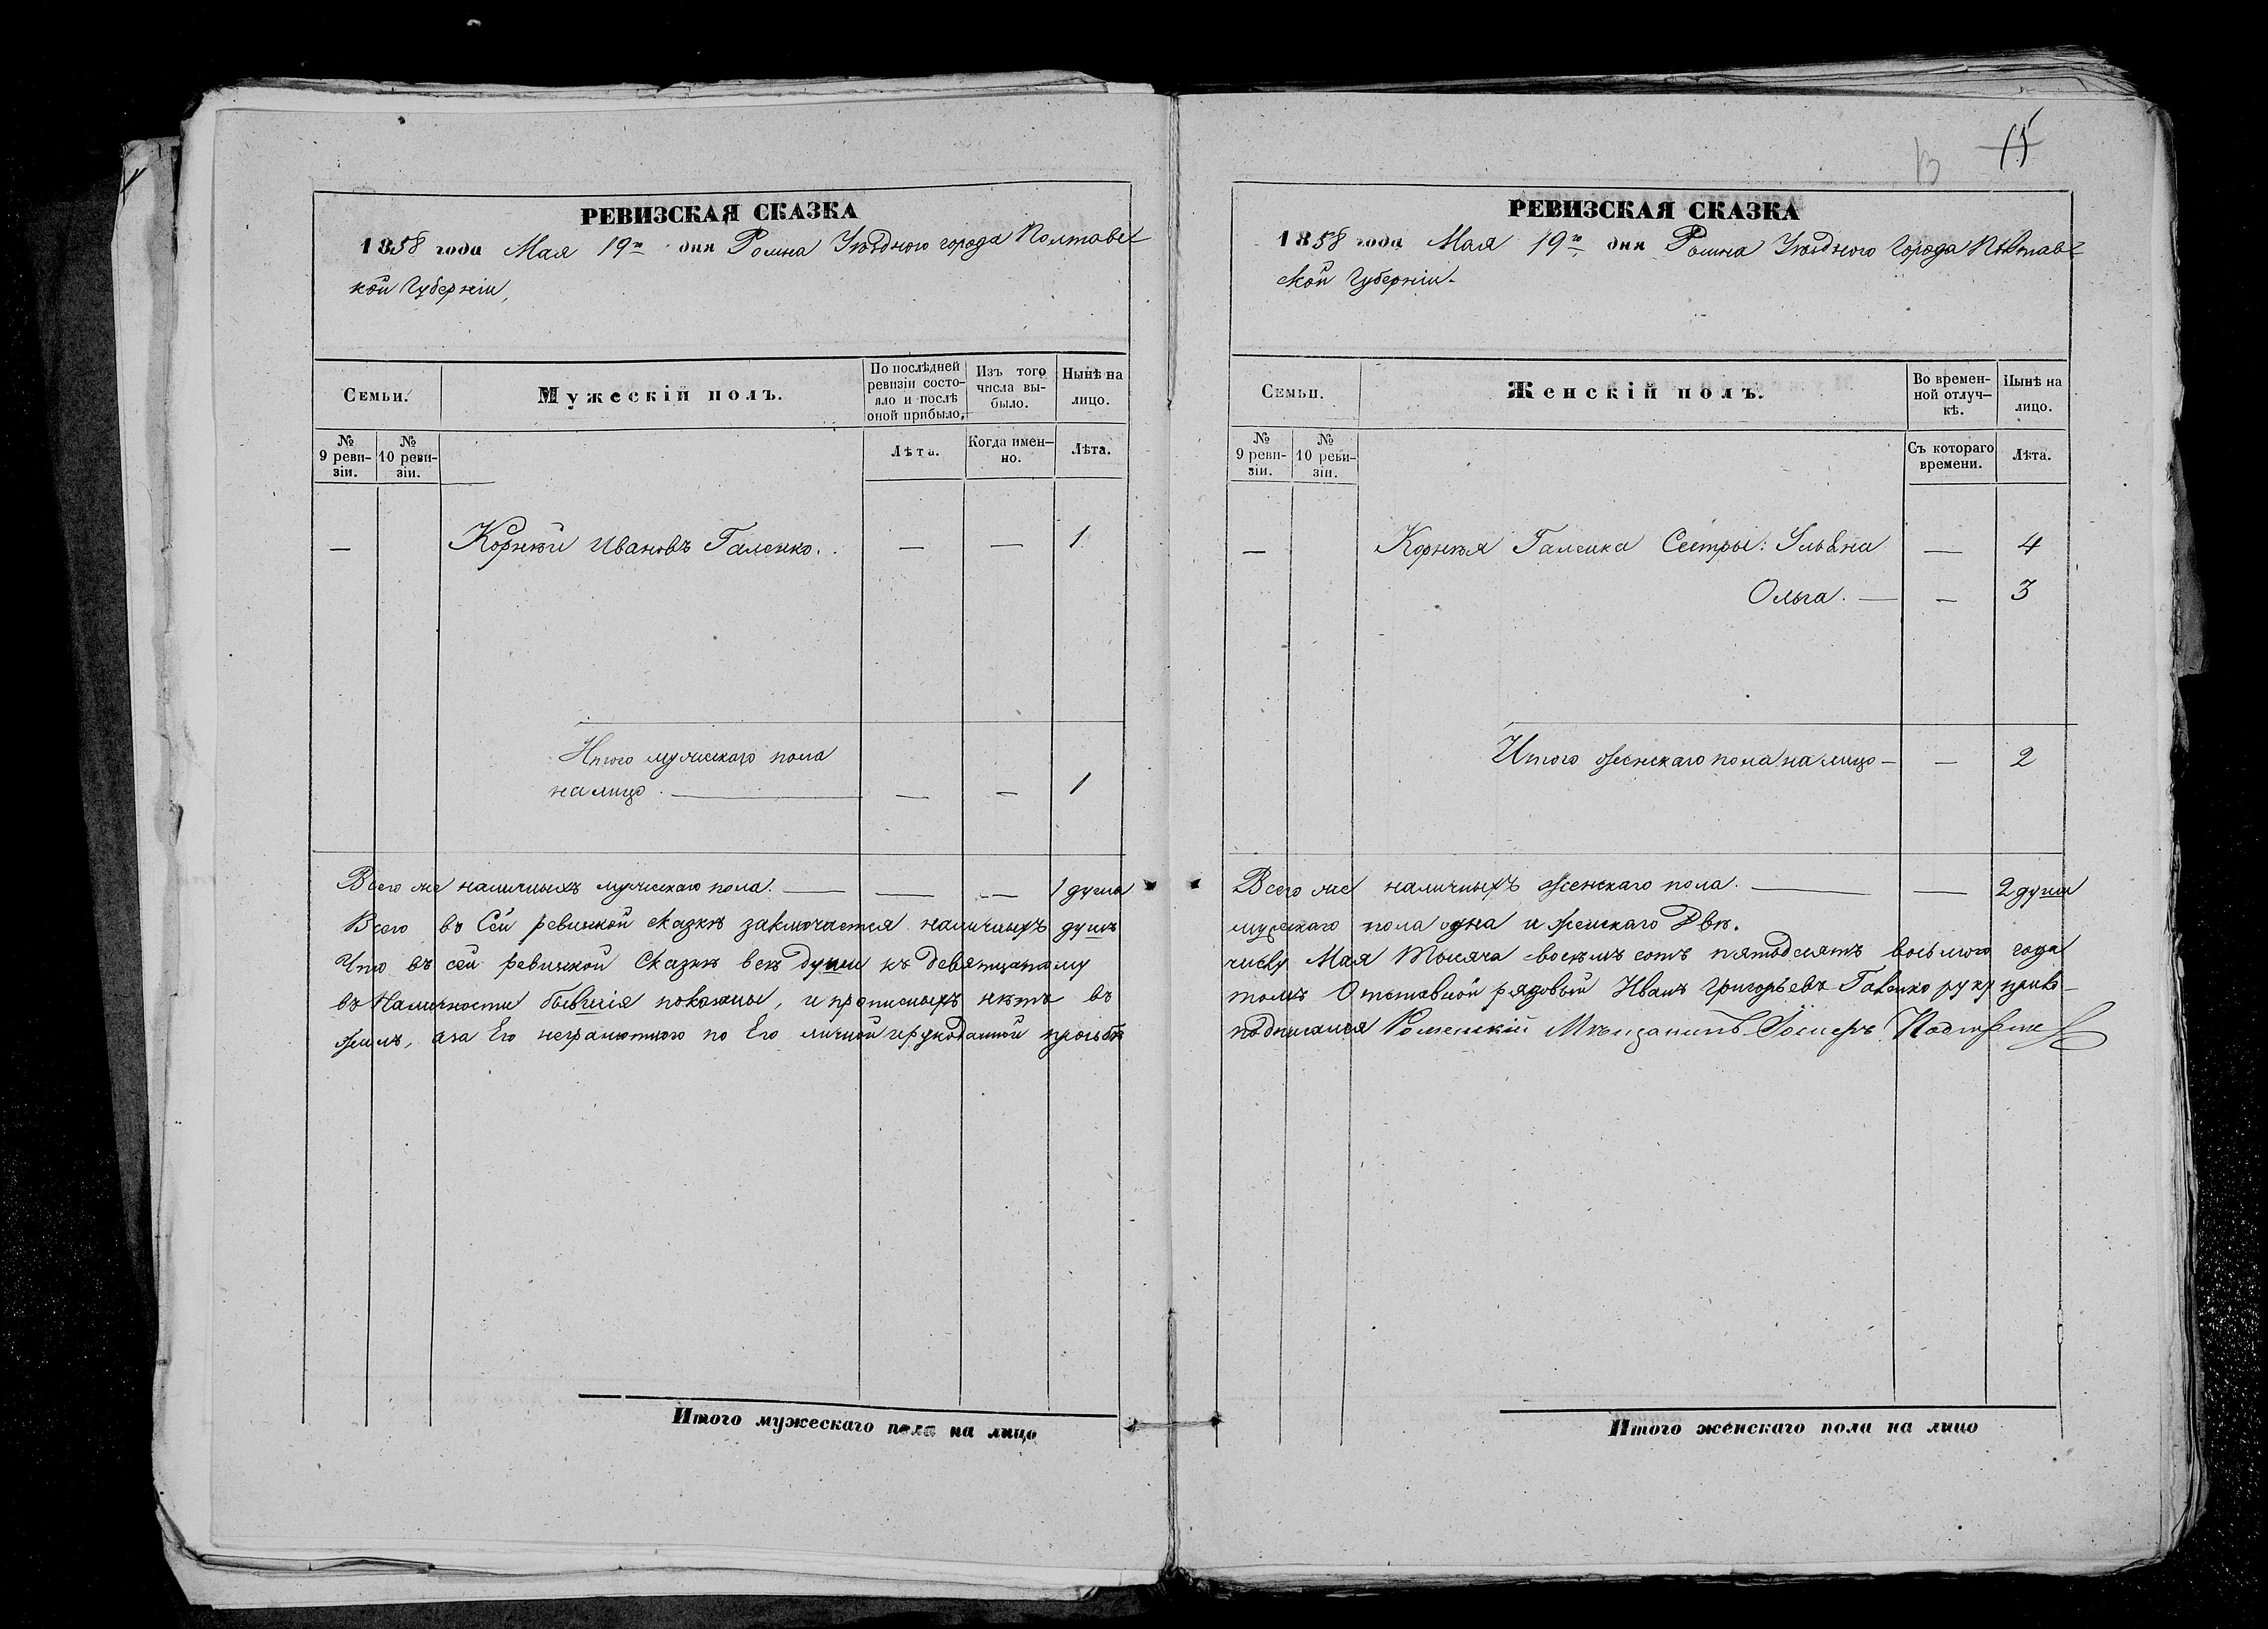 РЕВИЗСКАЯ СКАЗКА
1858 года Мая 19го дня Ромна Уѣзднаго города Полтавс-
кой Губерніи,
Семьи.
Мужескій полъ.
По послѣдней ревизіи состо-
яло и послѣ оной прибыло,
Изъ того числа вы-
было.
Нынѣ на лицо.
№ 9 реви-
зіи.
№ 10 реви-
зіи.
Лѣта.
Когда имен-
но.
Лѣта.
— Корнѣй Ивановъ Галенко. — — 1
Итого мужескаго пола
на лицо. — — — 1
Всего же наличныхъ мужескаго пола. — — — 1 душа
Всего въ Сей ревизкой сказкѣ заключается наличныхъ душъ
Что въ сей ревизкой Сказкѣ всѣ души къ девятнцатому
въ Наличности бывшія показаны, и прописныхъ нѣтъ въ
жилъ, аза Его неграмотнаго по Его личной ирукоданной прозьбѣ
Итого мужескаго пола на лицо
15
13
РЕВИЗСКАЯ СКАЗКА
1858 года Мая 19го дня Ромна Уѣзднаго Города Полтав-
ской Губерніи.
Семьи.
Женскій полъ.
Во времен-
ной отлуч-
кѣ.
Нынѣ на лицо.
№ 9 реви-
зіи.
№ 10 реви-
зіи.
Съ котораго времени.
Лѣта.
— Корнѣя Галенка Сестры: Ульяна — 4
Ольга. — — 3
Итого женскаго пола на лицо — — 2
Всего же наличныхъ женскаго пола. — — 2 души
мужескаго пола одна и женскаго Двѣ.
числу Мая Тысяча восѣмъ сотъ пятьдесятъ восьмого года
томъ Отставной рядовый Иванъ Григорьевъ Галенко руку прило-
подписался Роменскій Мѣщанинъ
Итого женскаго пола на лицо